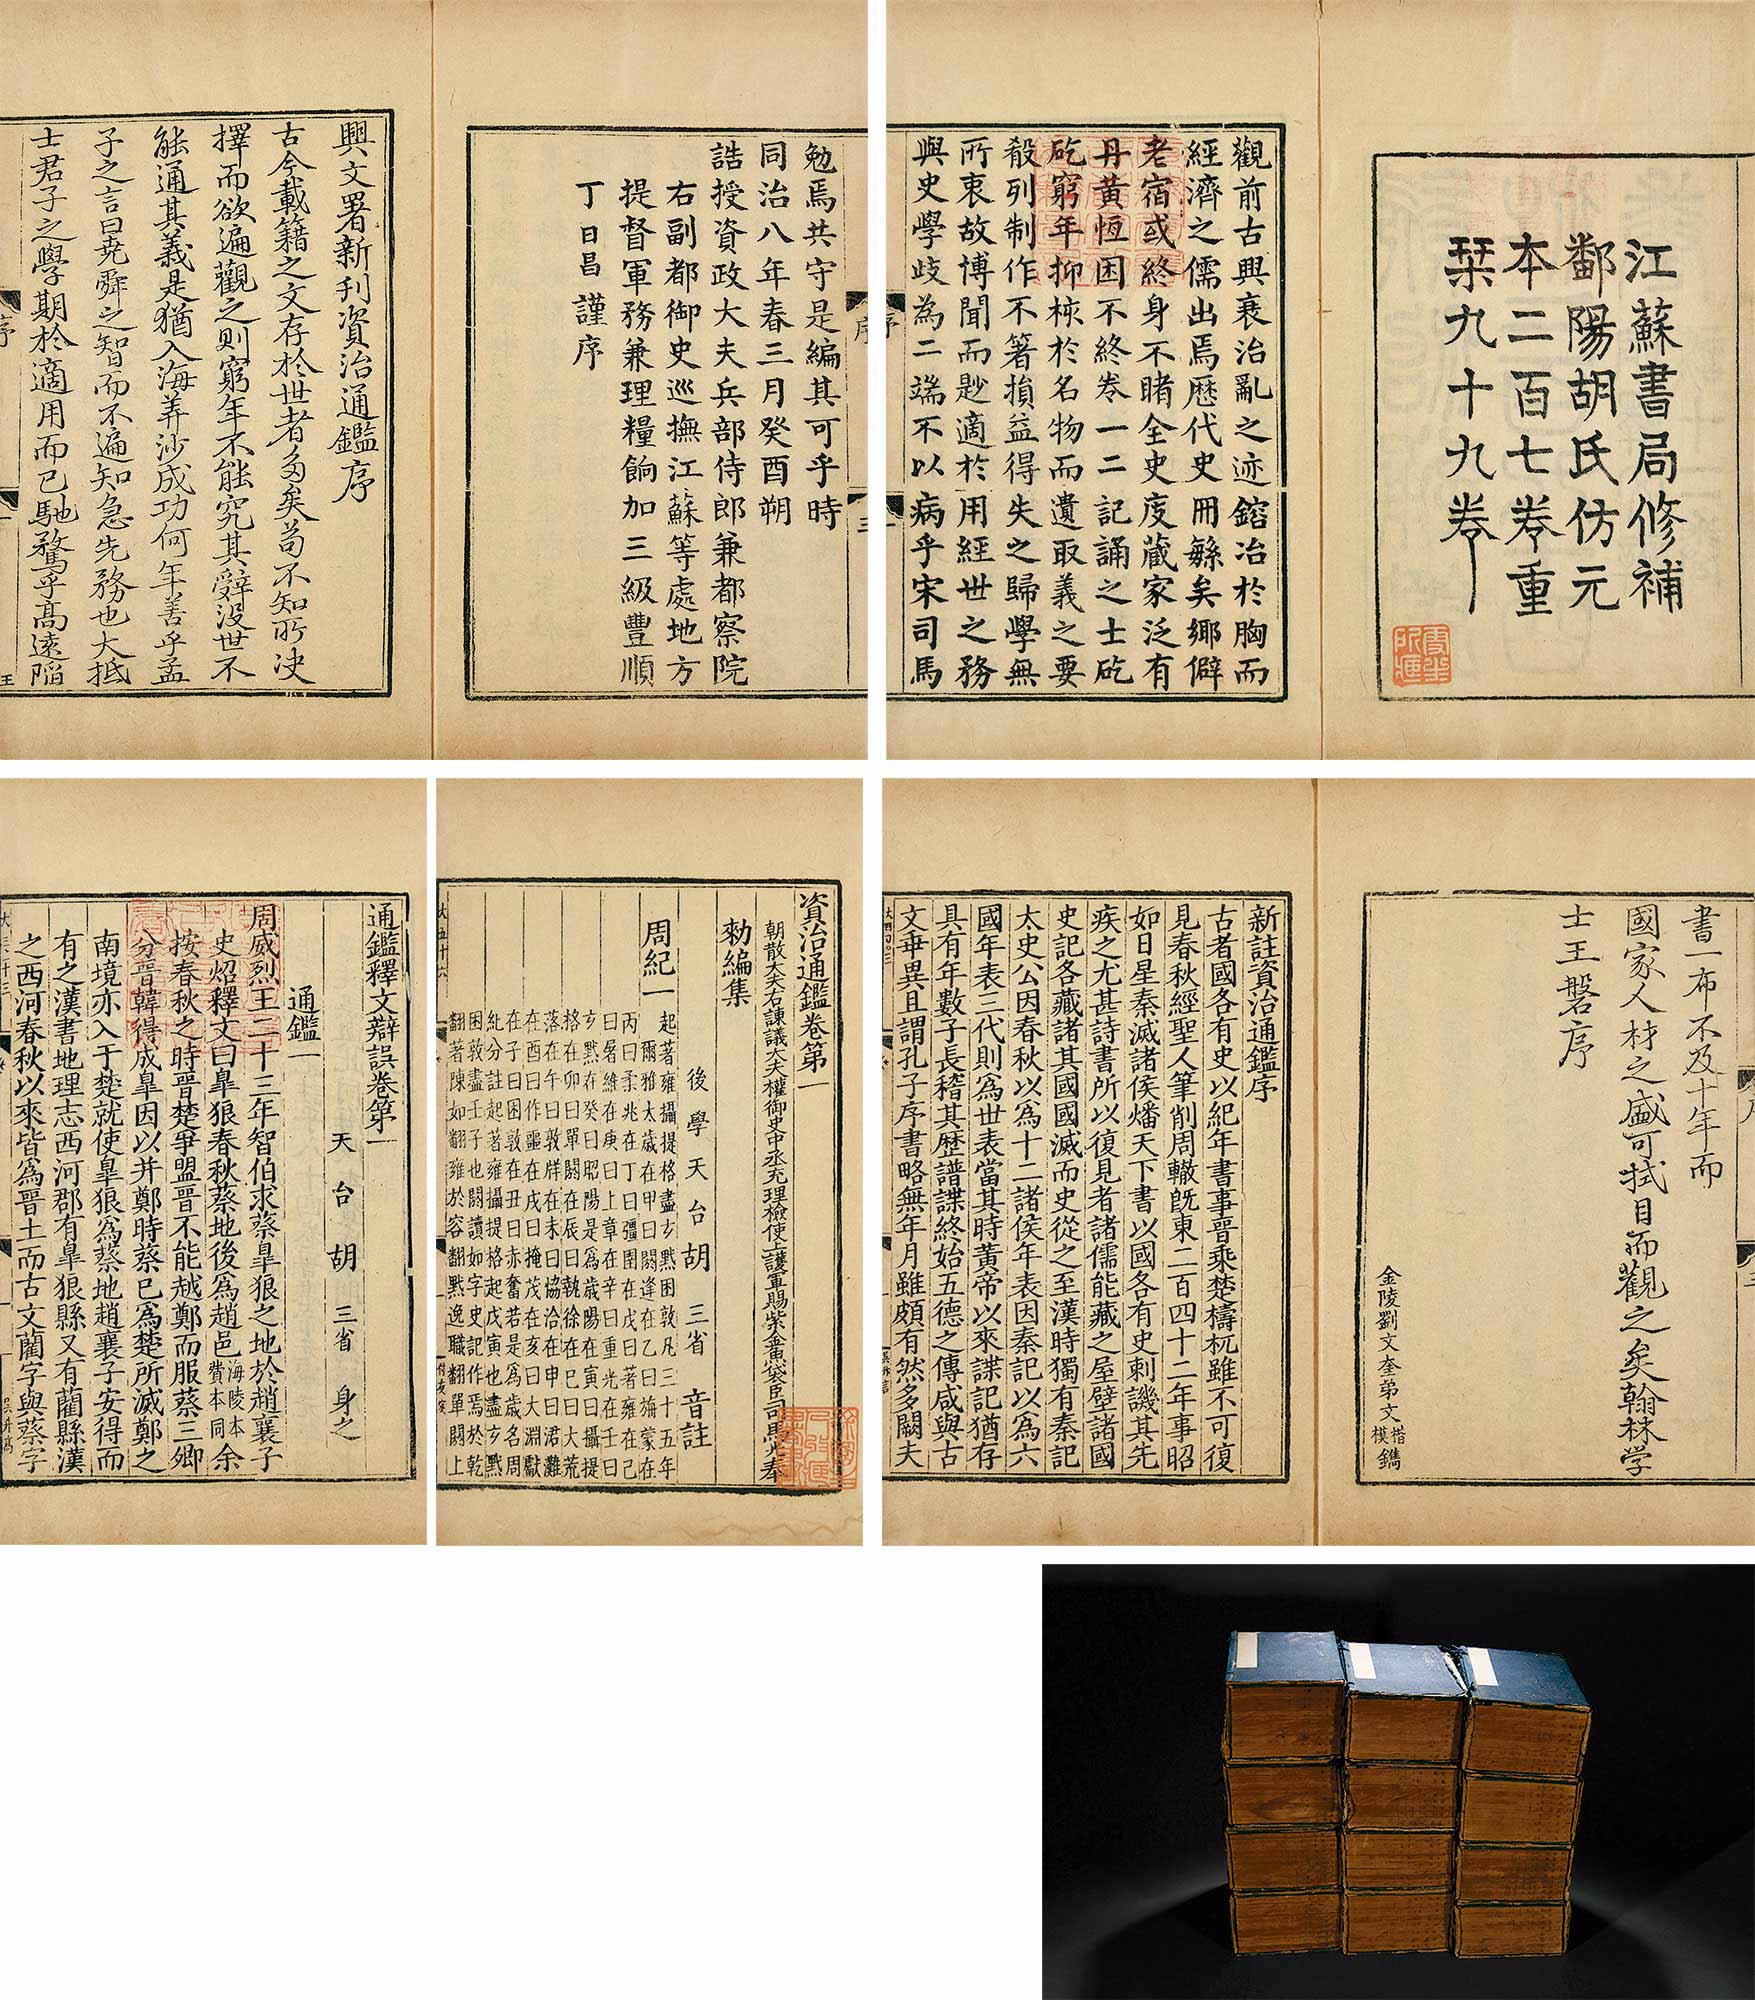 江蘇書局修補
鄱陽胡氏仿元
本二百七卷重
栞九十九卷
觀前古興衰治亂之迹鎔冶於胸而
經濟之儒出焉歷代史冊緐矣鄉僻
老宿或終身不睹全史庋藏家泛有
丹黃恆困不終卷一二記誦之士矻
矻窮年抑核於名物而遺取義之要
殺列制作不箸損益得失之歸學無
所衷故博聞而尟適於用經世之務
與史學歧為二端不以病乎宋司馬
序
勉焉共守是編其可乎時
同治八年春三月癸酉朔
誥授資政大夫兵部侍郎兼都察院
右副都御史巡撫江蘇等處地方
提督軍務兼理糧餉加三級豐順
丁日昌謹序
序
三
興文署新刊資治通鑑序
古今載籍之文存於世者多矣苟不知所決
擇而欲遍觀之則窮年不能究其辭沒世不
能通其義是猶入海筭沙成功何年善乎孟
子之言曰堯舜之智而不遍知急先務也大抵
士君子之學期於適用而已馳騖乎高遠陷
序
書一布不及十年而
國家人材之盛可拭目而觀之矣翰林学
士王磐序
金陵劉文奎弟文楷模鐫
新註資治通鑑序
古者國各有史以紀年書事晉乘楚檮杌雖不可復
見春秋經聖人筆削周轍旣東二百四十二年事昭
如日星秦滅諸侯燔天下書以國各有史刺譏其先
疾之尤甚詩書所以復見者諸儒能藏之屋壁諸國
史記各藏諸其國國滅而史從之至漢時獨有秦記
太史公因春秋以為十二諸侯年表因秦記以為六
國年表三代則為世表當其時黃帝以來諜記猶存
具有年數子長稽其歷譜諜終始五德之傳咸與古
文乖異且謂孔子序書略無年月雖頗有然多闕夫
資治通鑑卷第一
朝散大夫右諫議大夫權御史中丞充理檢使上護軍賜紫金魚袋臣司馬光奉
勅編集
後學天台胡三省音註
周紀一
起著雍攝提格盡玄黓困敦凡三十五年
爾雅太歲在甲曰閼逢在乙曰旃蒙在
丙曰柔兆在丁曰彊圉在戊曰著雍在己
曰屠維在庚曰上章在辛曰重光在壬曰
玄黓在癸曰昭陽是為歲陽在寅曰攝提
格在卯曰單閼在辰曰執徐在巳曰大荒
落在午曰敦牂在未曰協洽在申曰涒灘
在酉曰作噩在戌曰掩茂在亥曰大淵獻
在子曰困敦在丑曰赤奮若是為歲名周
紀分註起著雍攝提格起戊寅也盡玄黓
困敦盡壬子也閼讀如字史記作焉於乾
翻著陳如翻雍於容翻黓逸職翻單閼上
通鑑釋文辯誤卷第一
天台胡三省身之
通鑑一
周威烈王二十三年智伯求蔡臯狼之地於趙襄子
史炤釋文曰臯狼春秋蔡地後為趙邑海陵本費本同余
按春秋之時晉楚爭盟晉不能越鄭而服蔡三卿
分晉韓得成臯因以并鄭時蔡已為楚所滅鄭之
南境亦入于楚就使臯狼為蔡地趙襄子安得而
有之漢書地理志西河郡有臯狼縣又有藺縣漢
之西河春秋以來皆為晉土而古文藺字與蔡字